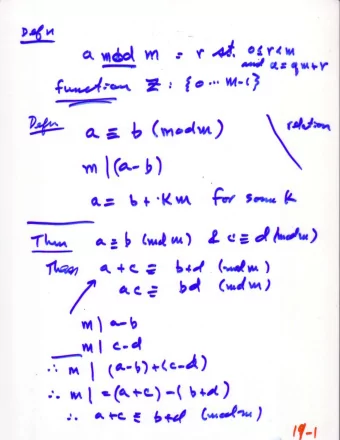 Defn
a mod m = r st. 0≤r<m
and a=qm+r
function Z : {0 ... m-1}
Defn a ≡ b (mod m) relation
m | (a-b)
a = b + km for some k
Thm a ≡ b (mod m) & c ≡ d (mod m)
Then a+c ≡ b+d (mod m)
ac ≡ bd (mod m)
m | a-b
m | c-d
∴ m | (a-b)+(c-d)
∴ m | =(a+c)-(b+d)
∴ a+c ≡ b+d (mod m)
19-1